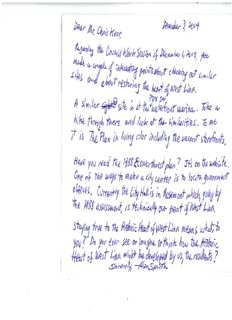 December 3, 2014
Dear Mr. Chris Kerr,
Regarding the Council Work Session of December 1, 2014, you
made a couple of interesting points about checking out similar
sites and about restoring the heart of West Linn.
A similar site is at the section. Take a
hike through there and look at the similarities. To me
it is The Plan in living color including the vacant storefronts.
Have you read the plan? It's on the website.
One of the ways to make a city center is to locate government
offices. Currently the City Hall is in which, going by
the assessment, is technically our heart of West Linn.
Staying true to the Historic Heart of West Linn means what, to
you? Do you ever see or imagine or think how the Historic
Heart of West Linn might be developed by us, the residents?
Sincerely,